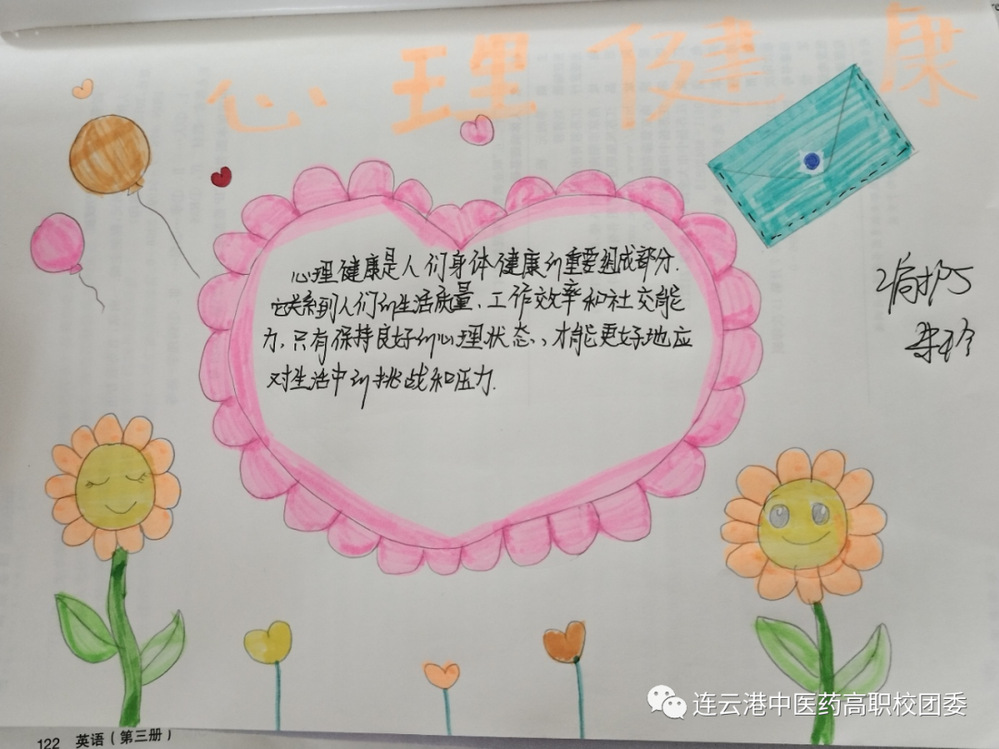 心理健康
心理健康是人们身体健康的重要组成部分.
它关系到人们的生活质量、工作效率和社交能
力,只有保持良好的心理状态,才能更好地应
对生活中的挑战和压力.
连云港中医药高职校团委
122 英语(第三册)